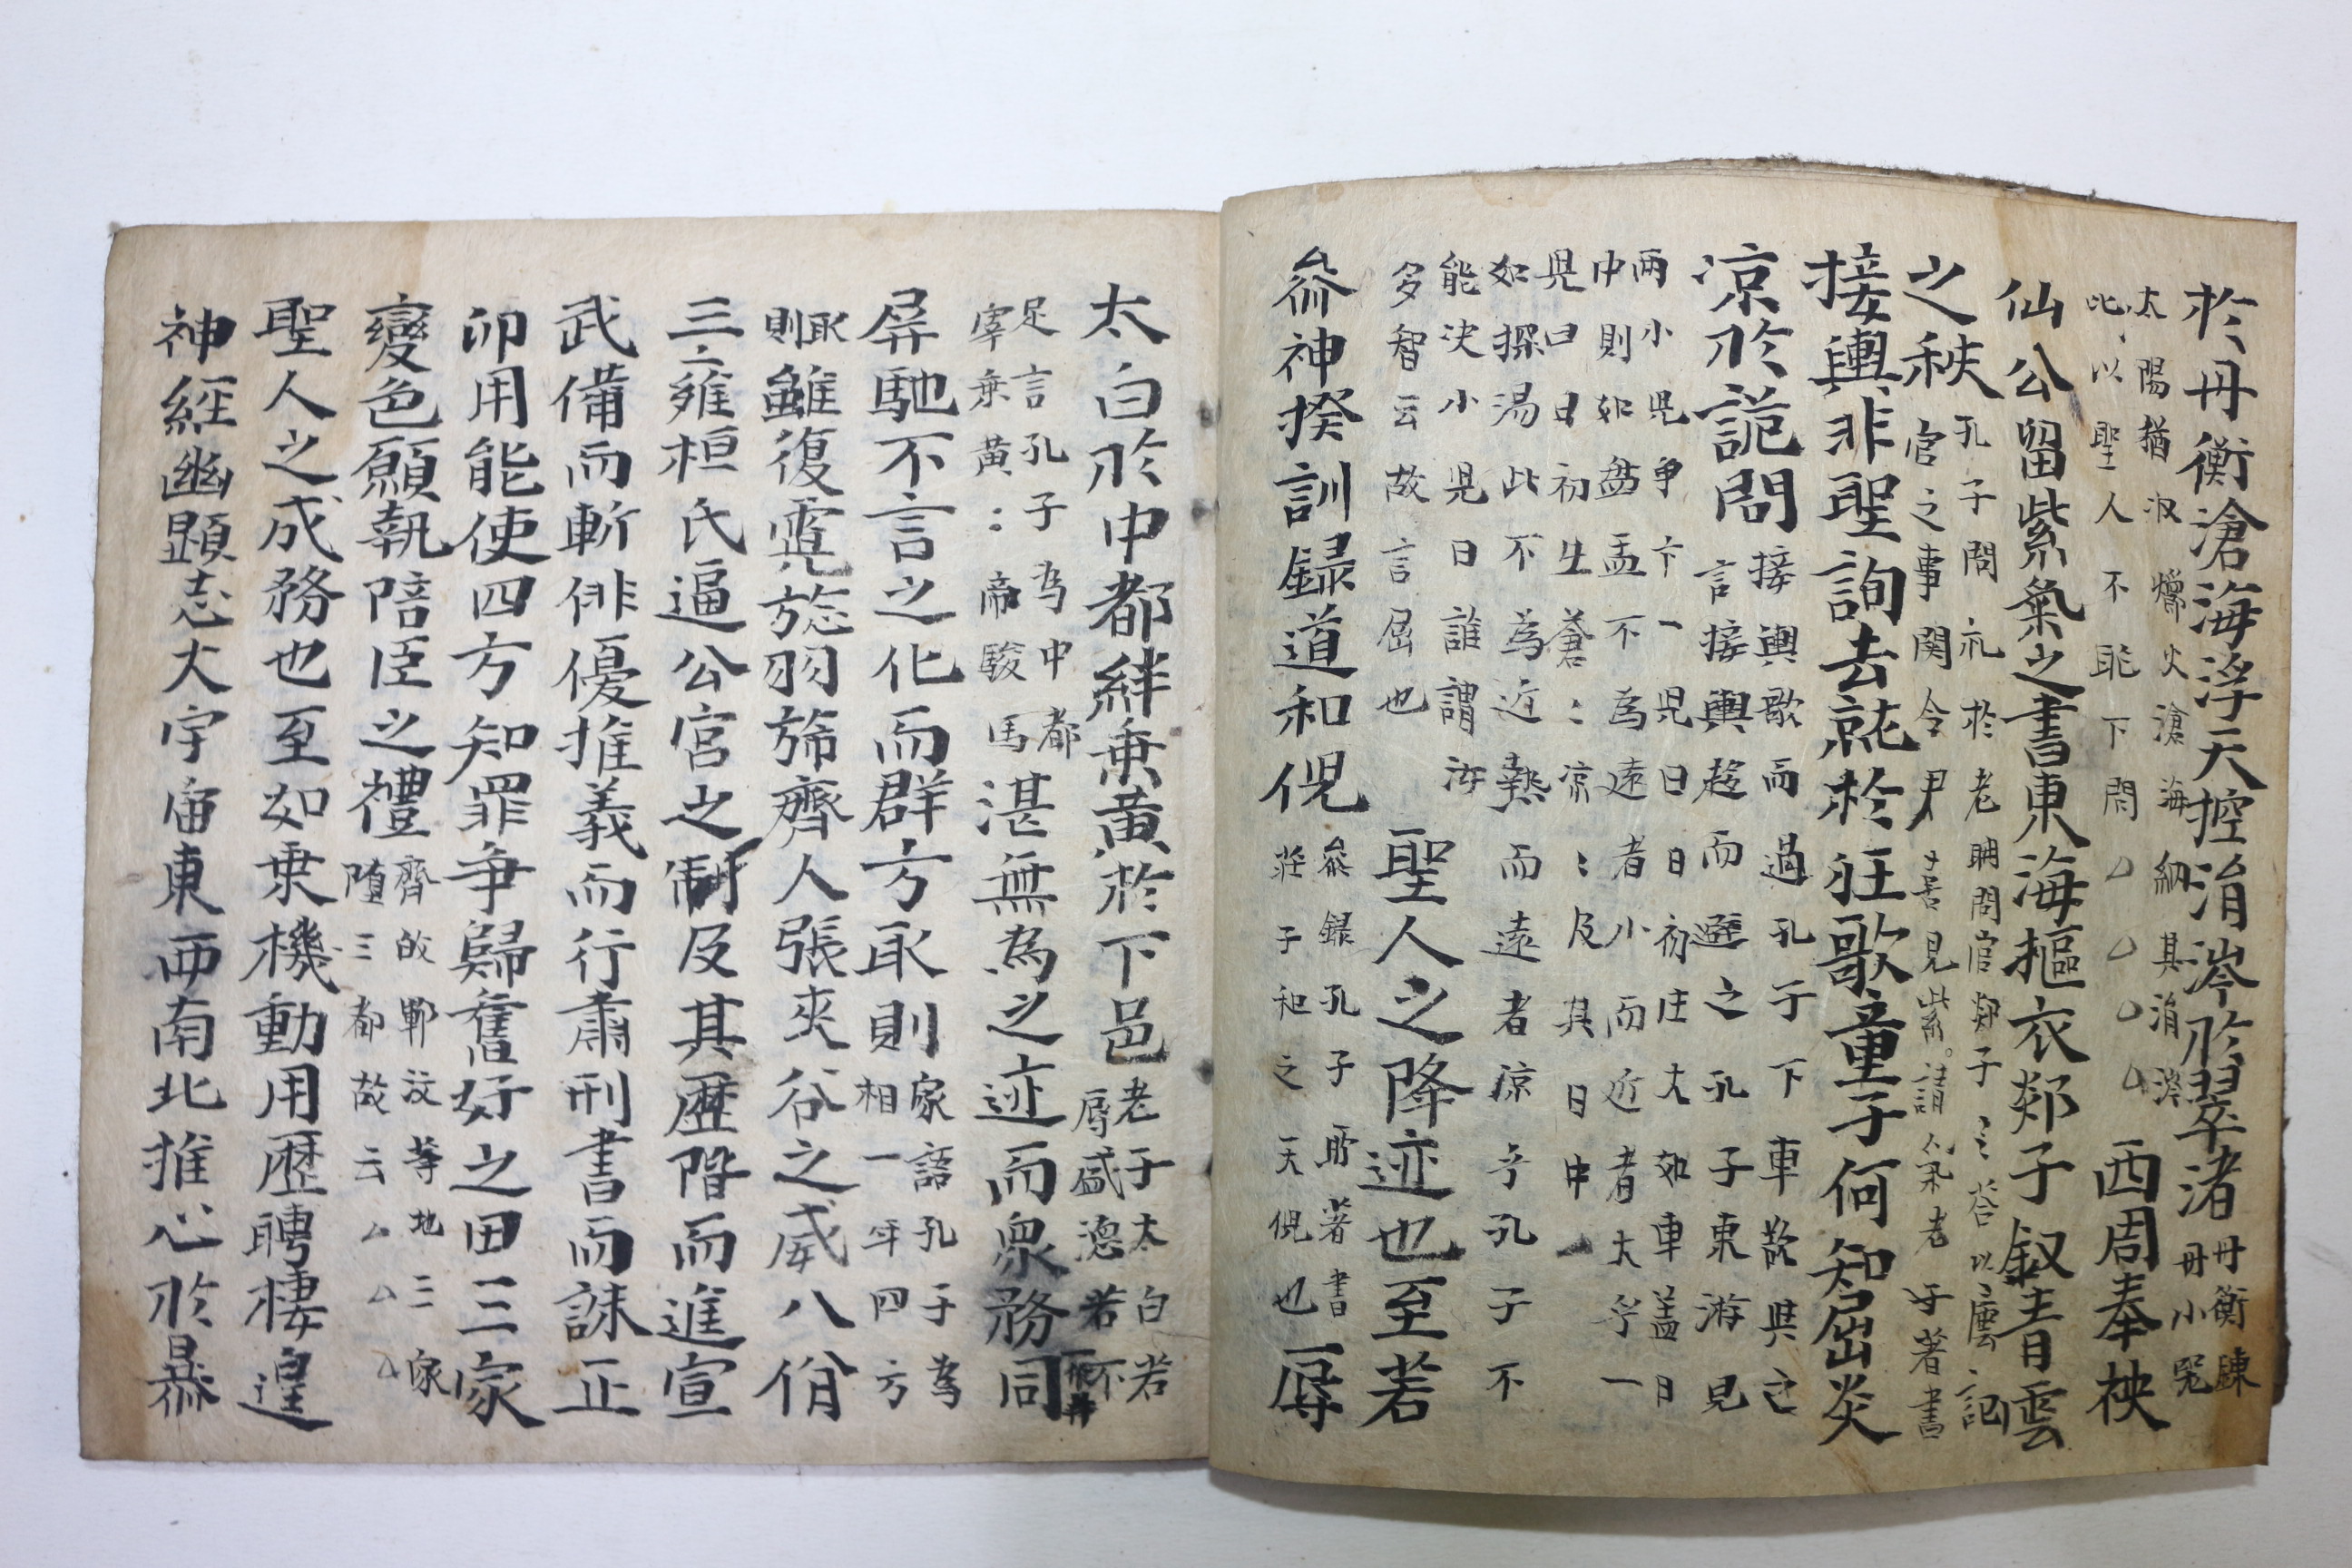 於丹衡滄海浮天控涓涔於翠渚丹衡鍊丹小兒
太陽猶沒爝火滄海納其涓涔
此以聖人不恥下問 西周奉柍
仙公留紫氣之書東海摳衣郯子釵青雲
之秧孔子問礼於老聃問官郯子
官之事関令尹喜見紫氣請老子著書
接輿非聖詢去就於狂歌童子何知屈炎
凉於詭問接輿歌而過孔子下車欲與之
言接輿趍而避之孔子東游見
两小児争一児曰日初庄大如車盖日
中則如盤盂不為遠者小而近者大乎一
児曰日初生蒼〻凉〻及其日中
如探湯此不為近熱而遠者凉乎孔子不
能决小児曰誰謂汝
多智云故言屈也 聖人之降迹也至若
叅神揆訓録道和倪叅録孔子所著書
荘子和之天倪也辱
太白於中都絆乗黄於下邑老子太白若
辱盛德若不
足言孔子為中都
宰乗黄〻帝駿馬湛無為之迹而衆務同
屏馳不言之化而群方取則家語孔子為
相一年四方
取則雖復霓旍羽旆齊人張夾谷之威八佾
三雍桓氏逼公宮之制及其歷階而進宣
武備而斬俳優推義而行肅刑書而誅正
卯用能使四方知罪争歸舊好之田三家
變色願執陪臣之禮齊故鄆汶等地三家
隨三都故云
聖人之成務也至如乗機動用歷聘棲遑
神經幽顕志大宇宙東西南北推心於暴